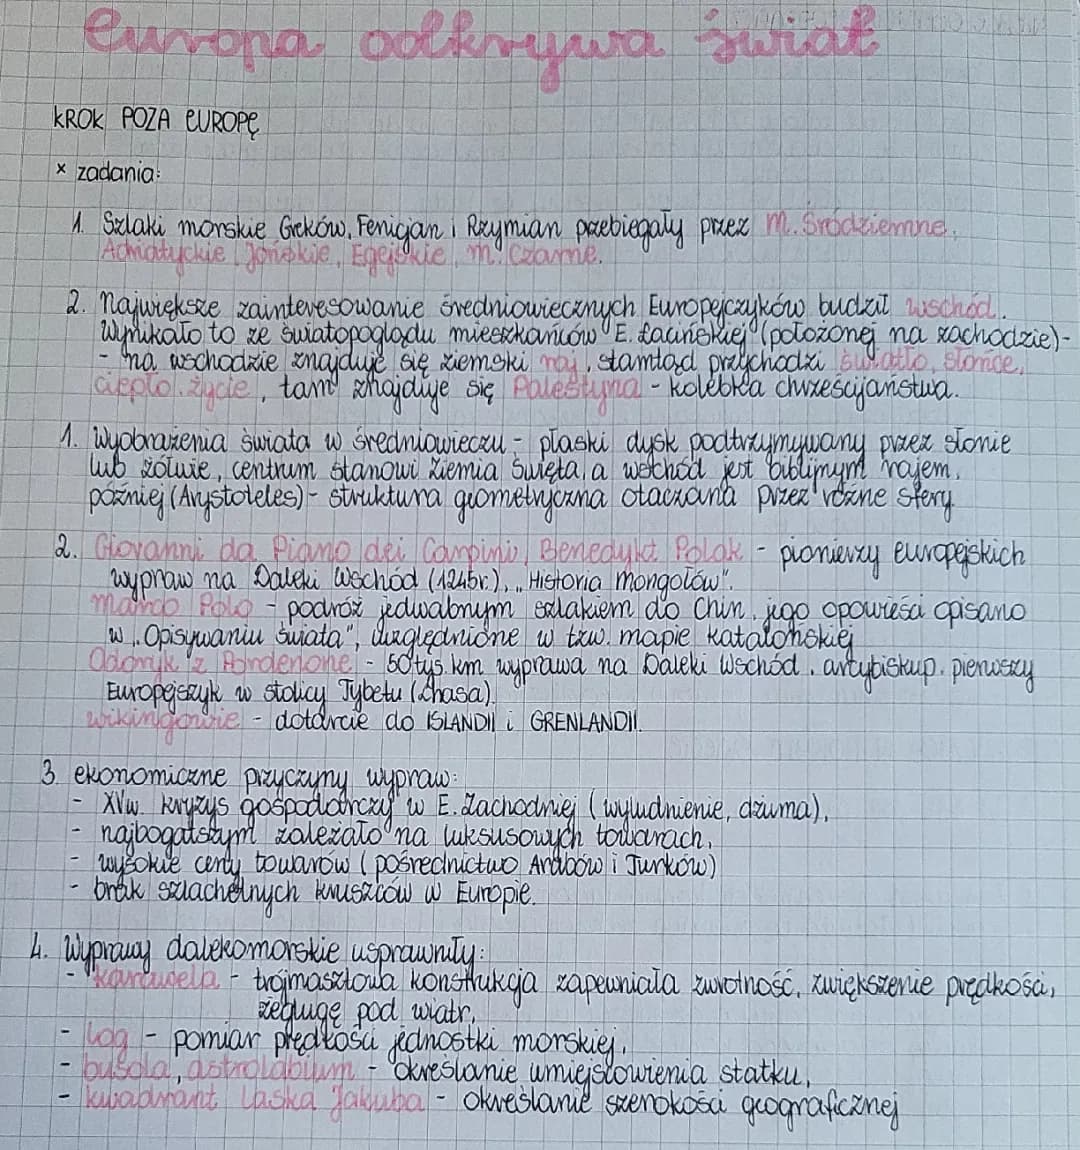 Europa odkrywa świat
KROK POZA EUROPĘ
x zadania:
1. Szlaki morskie Greków, Fenicjan i Rzymian przebiegały przez M. Śródziemne,
Adriatyckie, Jońskie, Egejskie, M. Czarne.
2. Największe zainteresowanie średniowiecznych Europejczyków budził wschód.
Wynikało to ze światopoglądu mieszkańców E. Łacińskiej (położonej na zachodzie)-
- na wschodzie znajduje się ziemski raj, stamtąd przychodzi światło, słońce,
ciepło, życie, tam znajduje się Palestyna - kolebka chrześcijaństwa.
1. Wyobrażenia świata w średniowieczu - płaski dysk podtrzymywany przez słonie
lub żółwie, centrum stanowi Ziemia Święta, a wschód jest biblijnym rajem,
później (Arystoteles) - struktura geometryczna otaczana przez różne sfery.
2. Giovanni da Piano dei Carpini, Benedykt Polak - pionierzy europejskich
wypraw na Daleki Wschód (1245r.), "Historia Mongołów".
Marco Polo - podróż jedwabnym szlakiem do Chin, jego opowieści opisano
w "Opisywaniu świata", uwzględnione w tzw. mapie katalońskiej
Odoryk z Pordenone - 50tys. km wyprawa na Daleki Wschód, arcybiskup, pierwszy
Europejczyk w stolicy Tybetu (Lhasa).
wikingowie - dotarcie do ISLANDII i GRENLANDII.
3. ekonomiczne przyczyny wypraw:
- XVw. kryzys gospodarczy w E. Zachodniej (wyludnienie, dżuma),
- najbogatszym zależało na luksusowych towarach,
- wysokie ceny towarów (pośrednictwo Arabów i Turków)
- brak szlachetnych kruszców w Europie.
4. Wyprawy dalekomorskie usprawniły:
- karawela - trójmasztowa konstrukcja zapewniała zwrotność, zwiększenie prędkości,
żeglugę pod wiatr,
- log - pomiar prędkości jednostki morskiej,
- busola, astrolabium - określanie umiejscowienia statku,
- kwadrant, laska Jakuba - określanie szerokości geograficznej